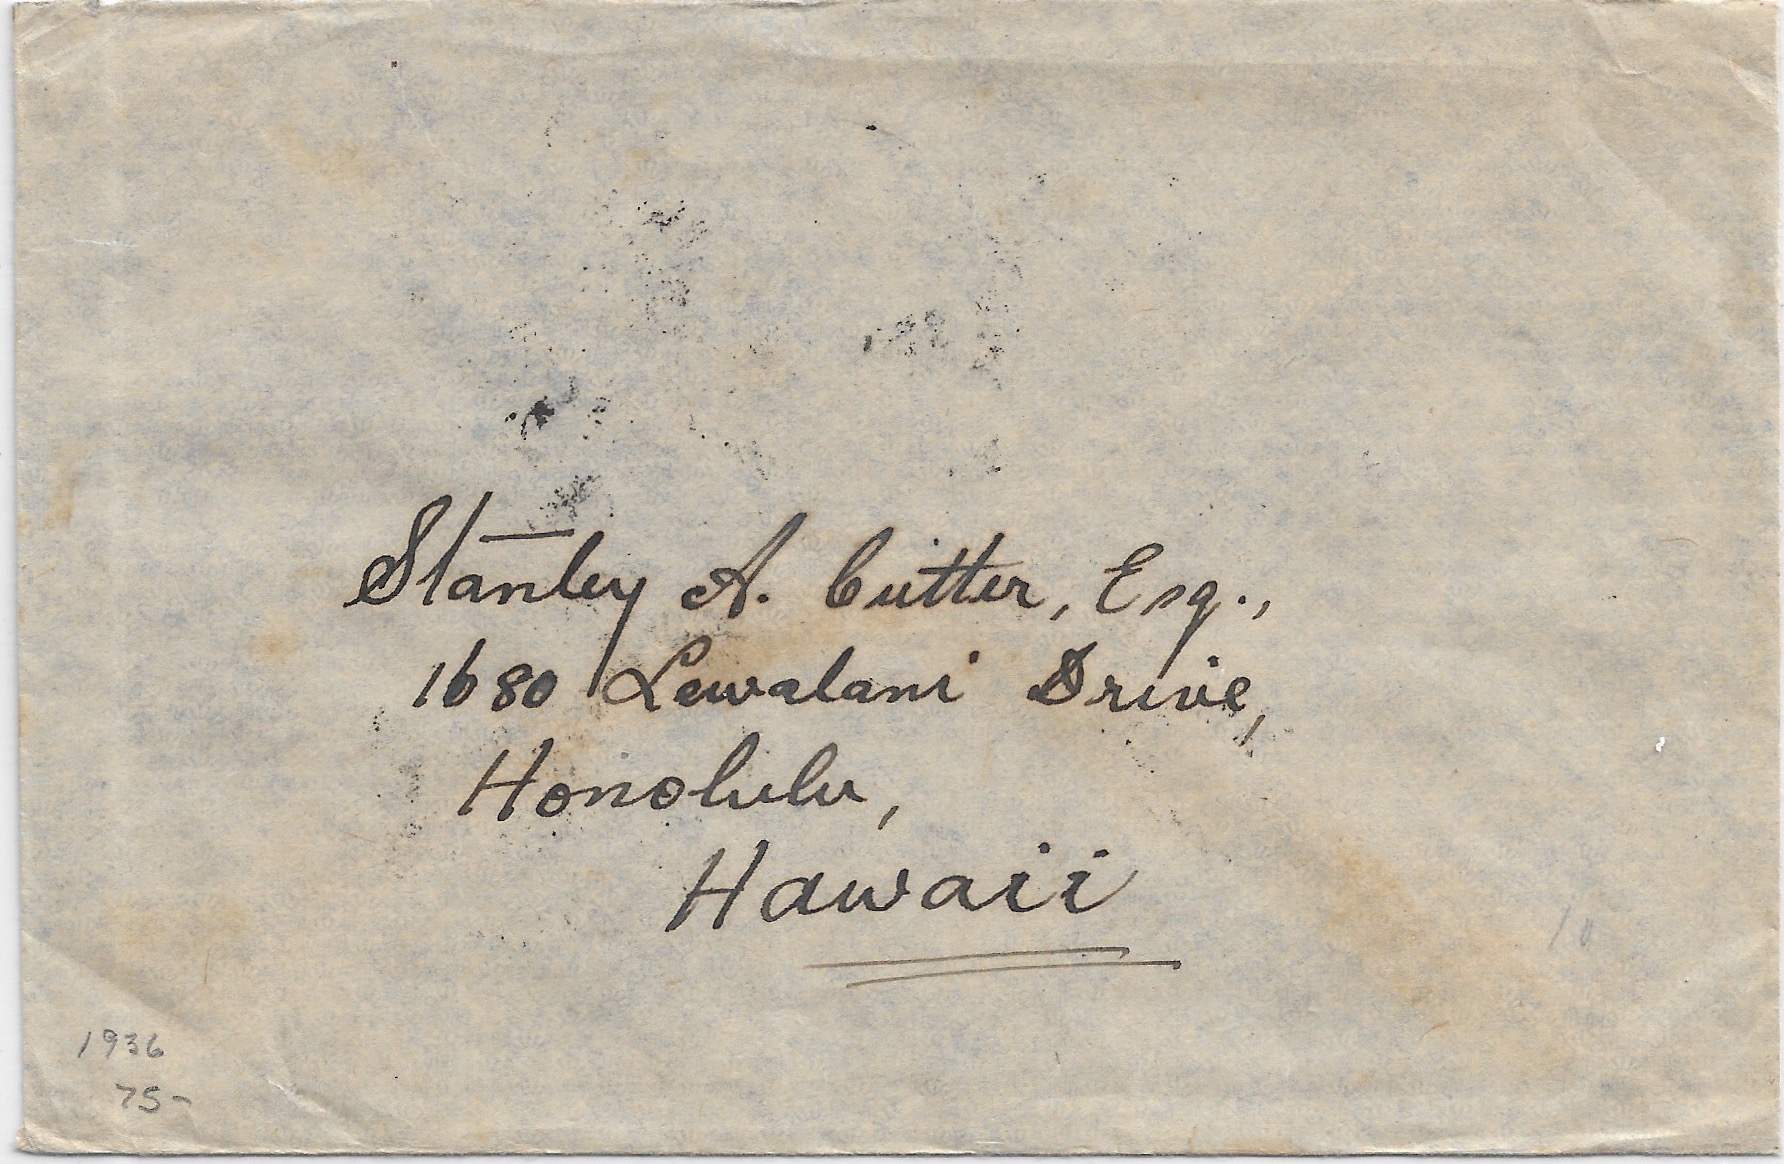 Stanley A. Cutter, Esq.,
1680 Lewalani Drive,
Honolulu,
Hawaii
10
1936
75-